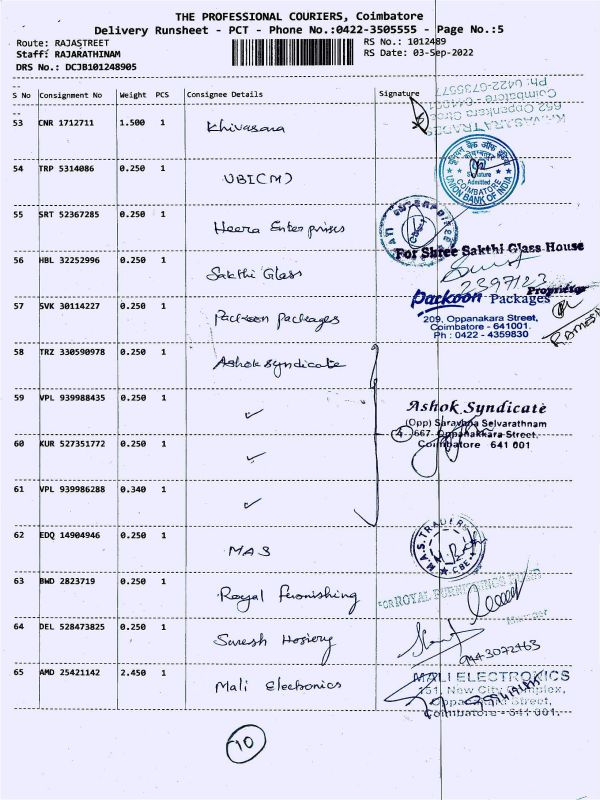 THE PROFESSIONAL COURIERS, Coimbatore
Delivery Runsheet - PCT - Phone No.:0422-3505555 - Page No.:5
Route: RAJASTREET
RS No.: 1012489
Staff: RAJARATHINAM
RS Date: 03-Sep-2022
DRS No.: DCJB101248905
S No Consignment No Weight PCS Consignee Details Signature
53 CNR 1712711 1.500 1 Khivasara
54 TRP 5314086 0.250 1 UBI(M)
Signature
Admitted
COIMBATORE
UNION BANK OF INDIA
55 SRT 52367285 0.250 1 Heera Enterprises
56 HBL 32252996 0.250 1 Sakthi Glass
For Shree Sakthi Glass House
2397122
Proprietor
57 SVK 30114227 0.250 1 Packoon packages
Packoon Packages
209, Oppanakara Street,
Coimbatore - 641001.
Ph : 0422 - 4359830
58 TRZ 330590978 0.250 1 Ashok syndicate
59 VPL 939988435 0.250 1 ✓
Ashok Syndicate
(Opp) Saravana Selvarathnam
667- Oppanakkara Street,
Coimbatore 641 001
4
60 KUR 527351772 0.250 1 ✓
61 VPL 939986288 0.340 1 ✓
62 EDQ 14904946 0.250 1 MAS
M.A.S. TRADERS
CBE
63 BWD 2823719 0.250 1 Royal furonishing
For ROYAL FURNISHINGS
Manager
64 DEL 528473825 0.250 1 Suresh Hosiery
9443072463
65 AMD 25421142 2.450 1 Mali Electronics
MALI ELECTRONICS
151, New City Complex,
Oppanakara Street,
Coimbatore - 641 001.
10